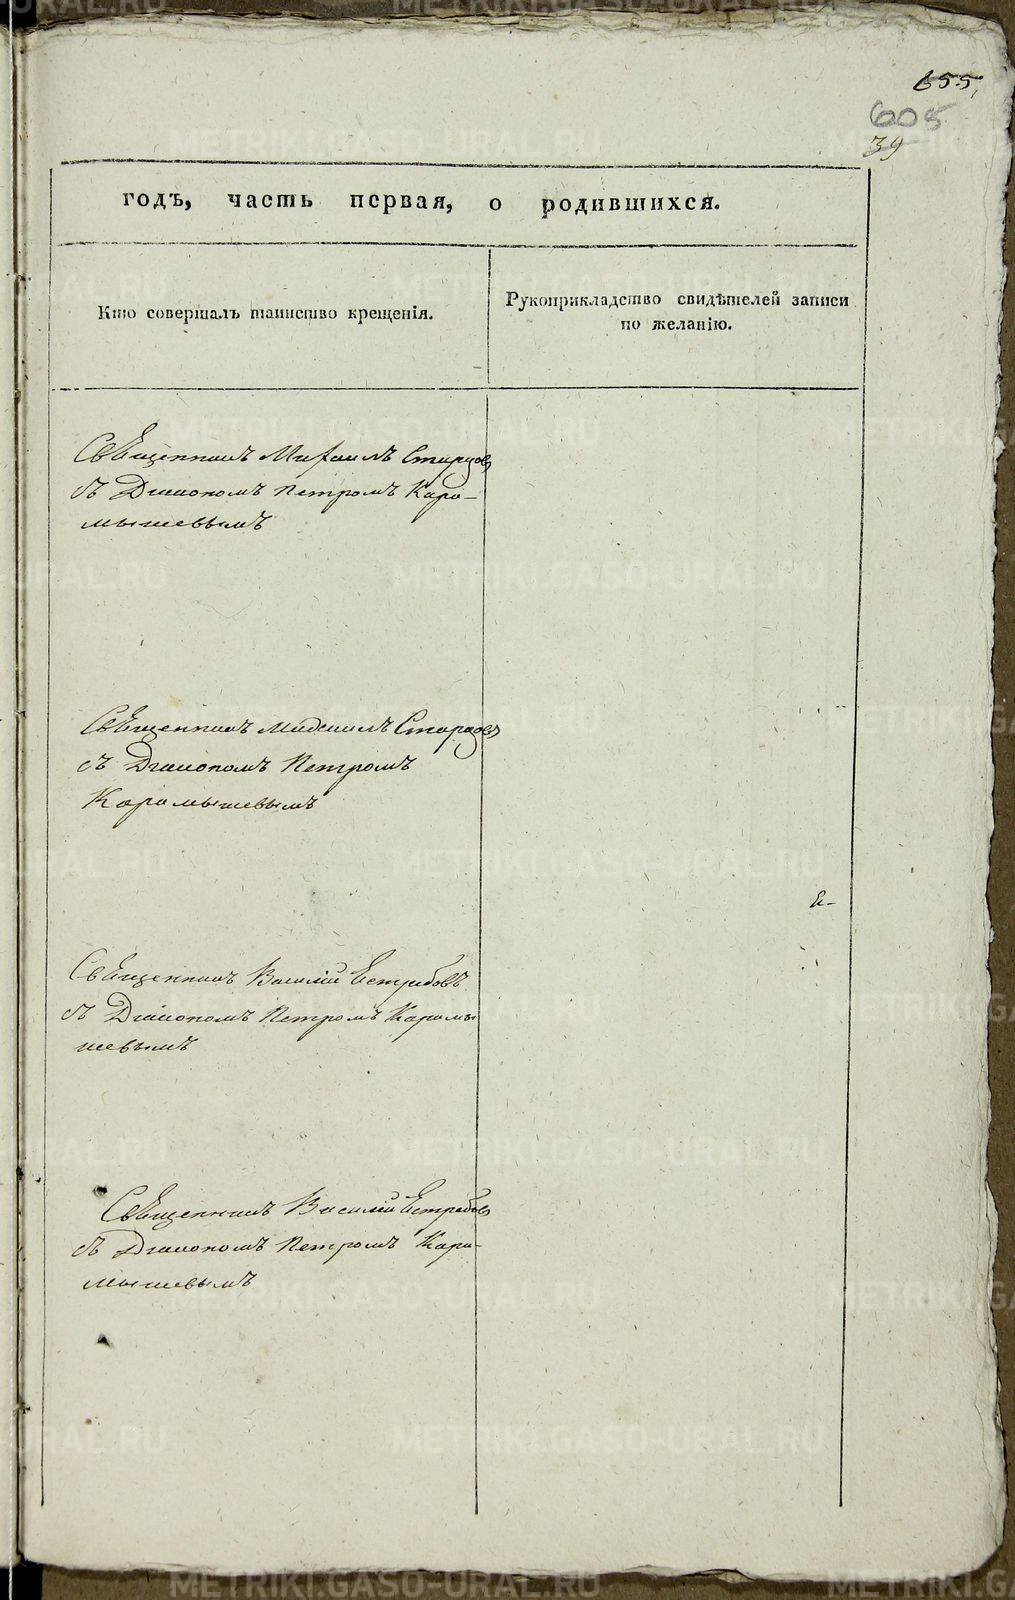 655,
605
39
годъ, часть первая, о родившихся.
Кто совершалъ таинство крещенія.
Рукоприкладство свидѣтелей записи
по желанію.
Священникъ Михаилъ Старцовъ
съ Діакономъ Петромъ Кара-
мышевымъ
Священникъ Михаилъ Старцовъ
съ Діакономъ Петромъ
Карамышевымъ
Священникъ Василій Ястребовъ
съ Діакономъ Петромъ Карамы
шевымъ
Священникъ Василій Ястребовъ
съ Діакономъ Петромъ Кара-
мышевымъ
METRIKI.GASO-URAL.RU